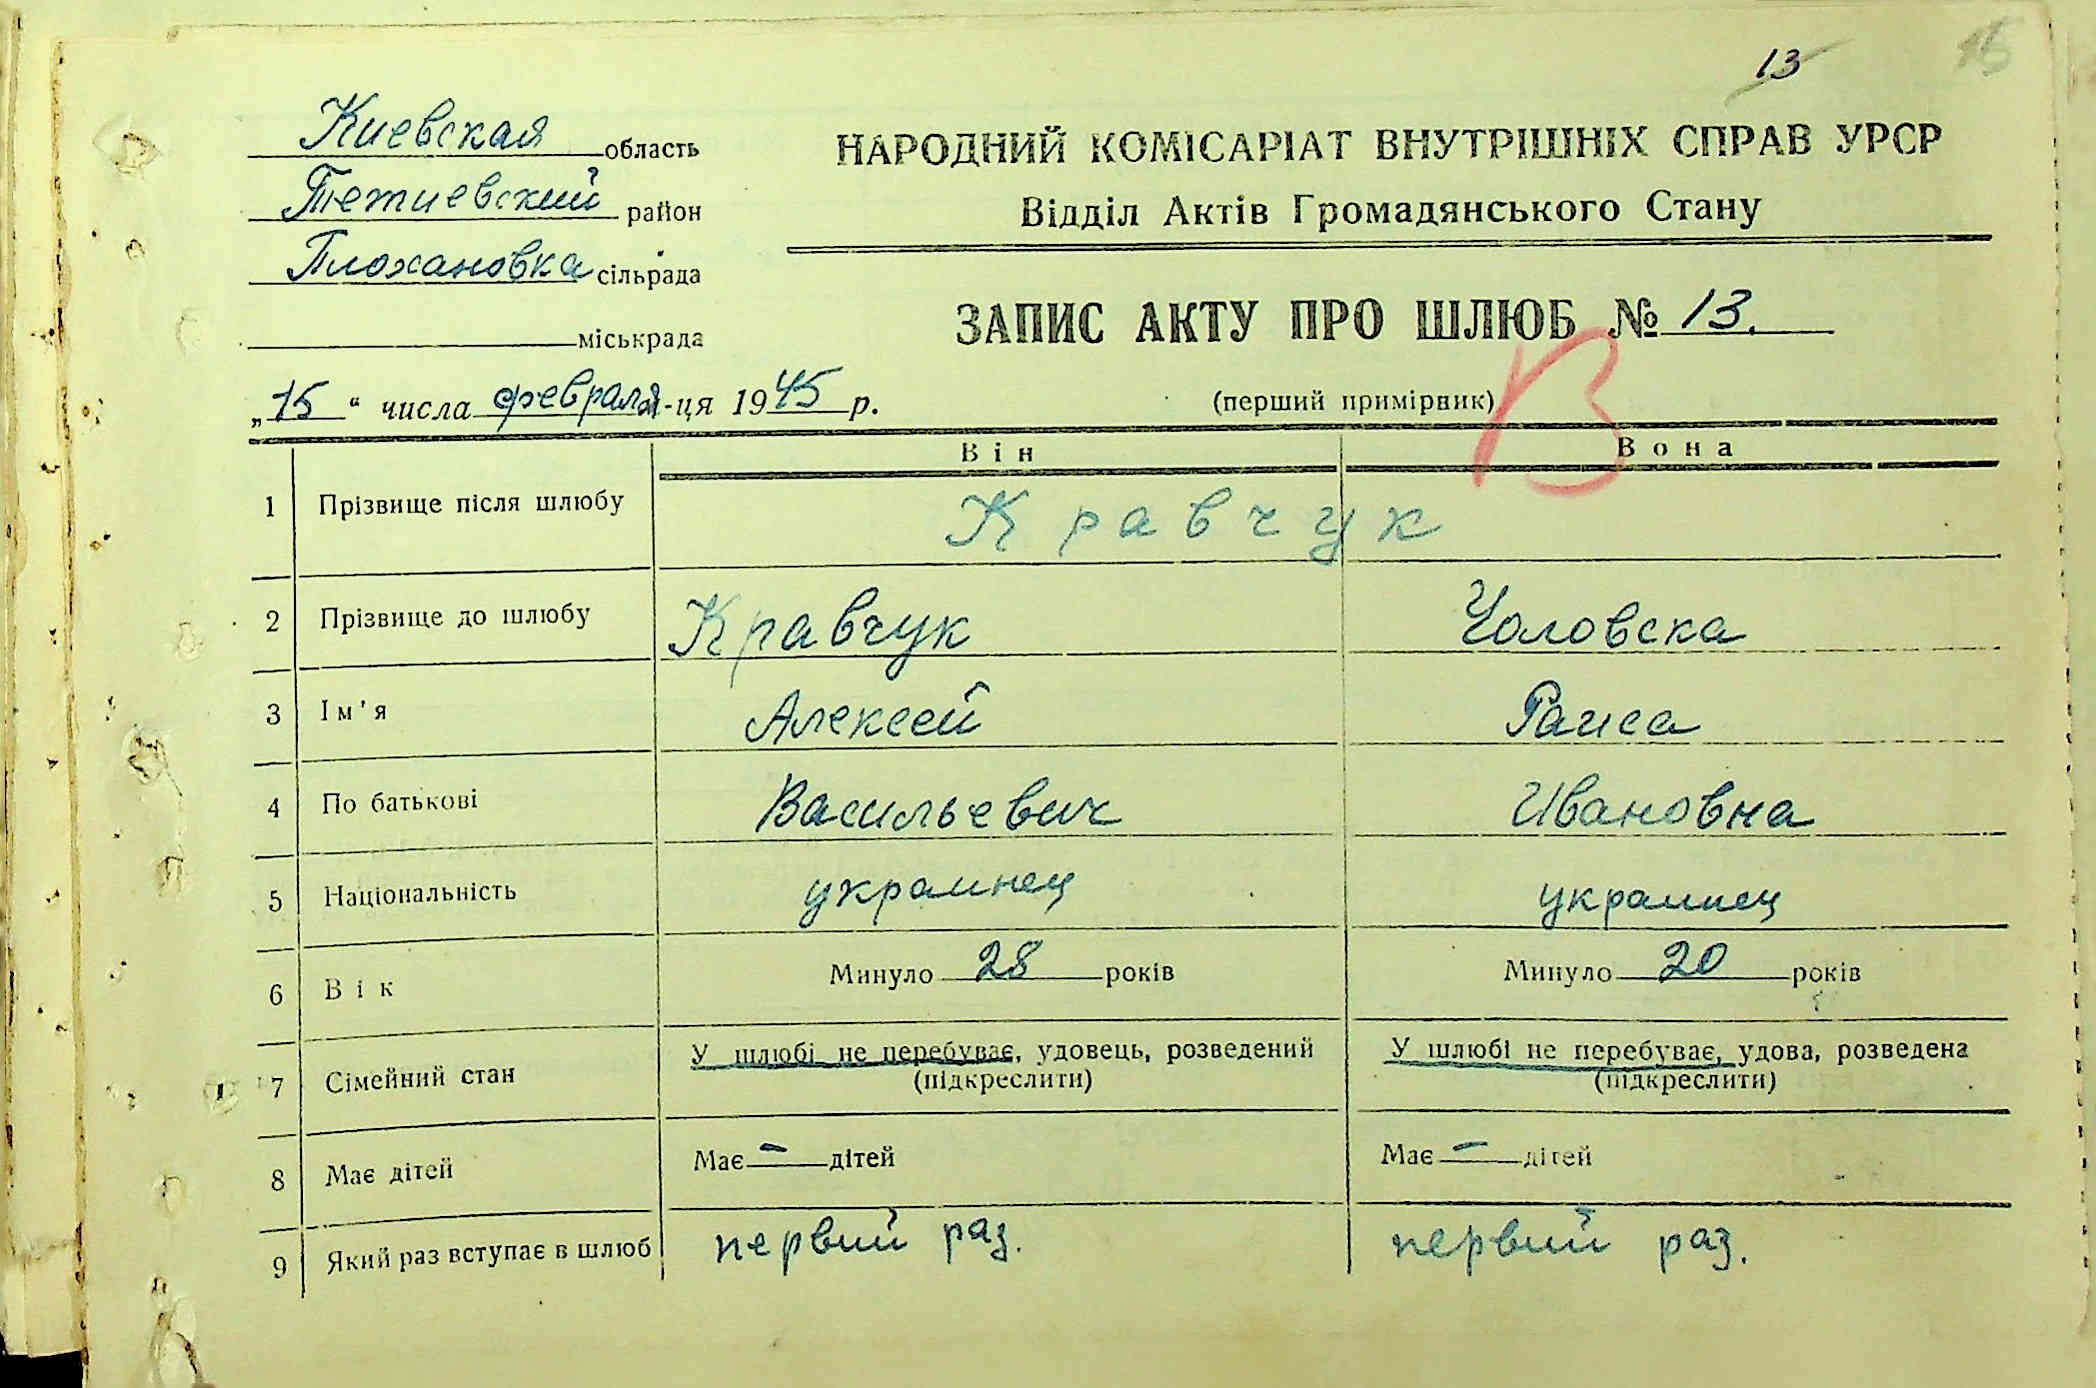 13 15
Киевская область
Тетиевский район
Плохановка сільрада
міськрада
НАРОДНИЙ КОМІСАРІАТ ВНУТРІШНІХ СПРАВ УРСР
Відділ Актів Громадянського Стану
ЗАПИС АКТУ ПРО ШЛЮБ № 13.
(перший примірник)
В
„15“ числа февраля м-ця 1945 р.
Він Вона
1 Прізвище після шлюбу Кравчук
2 Прізвище до шлюбу Кравчук Чоловска
3 Ім'я Алексей Раиса
4 По батькові Васильевич Ивановна
5 Національність украинец украинец
6 Вік Минуло 28 років Минуло 20 років
7 Сімейний стан У шлюбі не перебуває, удовець, розведений (підкреслити) У шлюбі не перебуває, удова, розведена (підкреслити)
8 Має дітей Має — дітей Має — дітей
9 Який раз вступає в шлюб первий раз. первий раз.